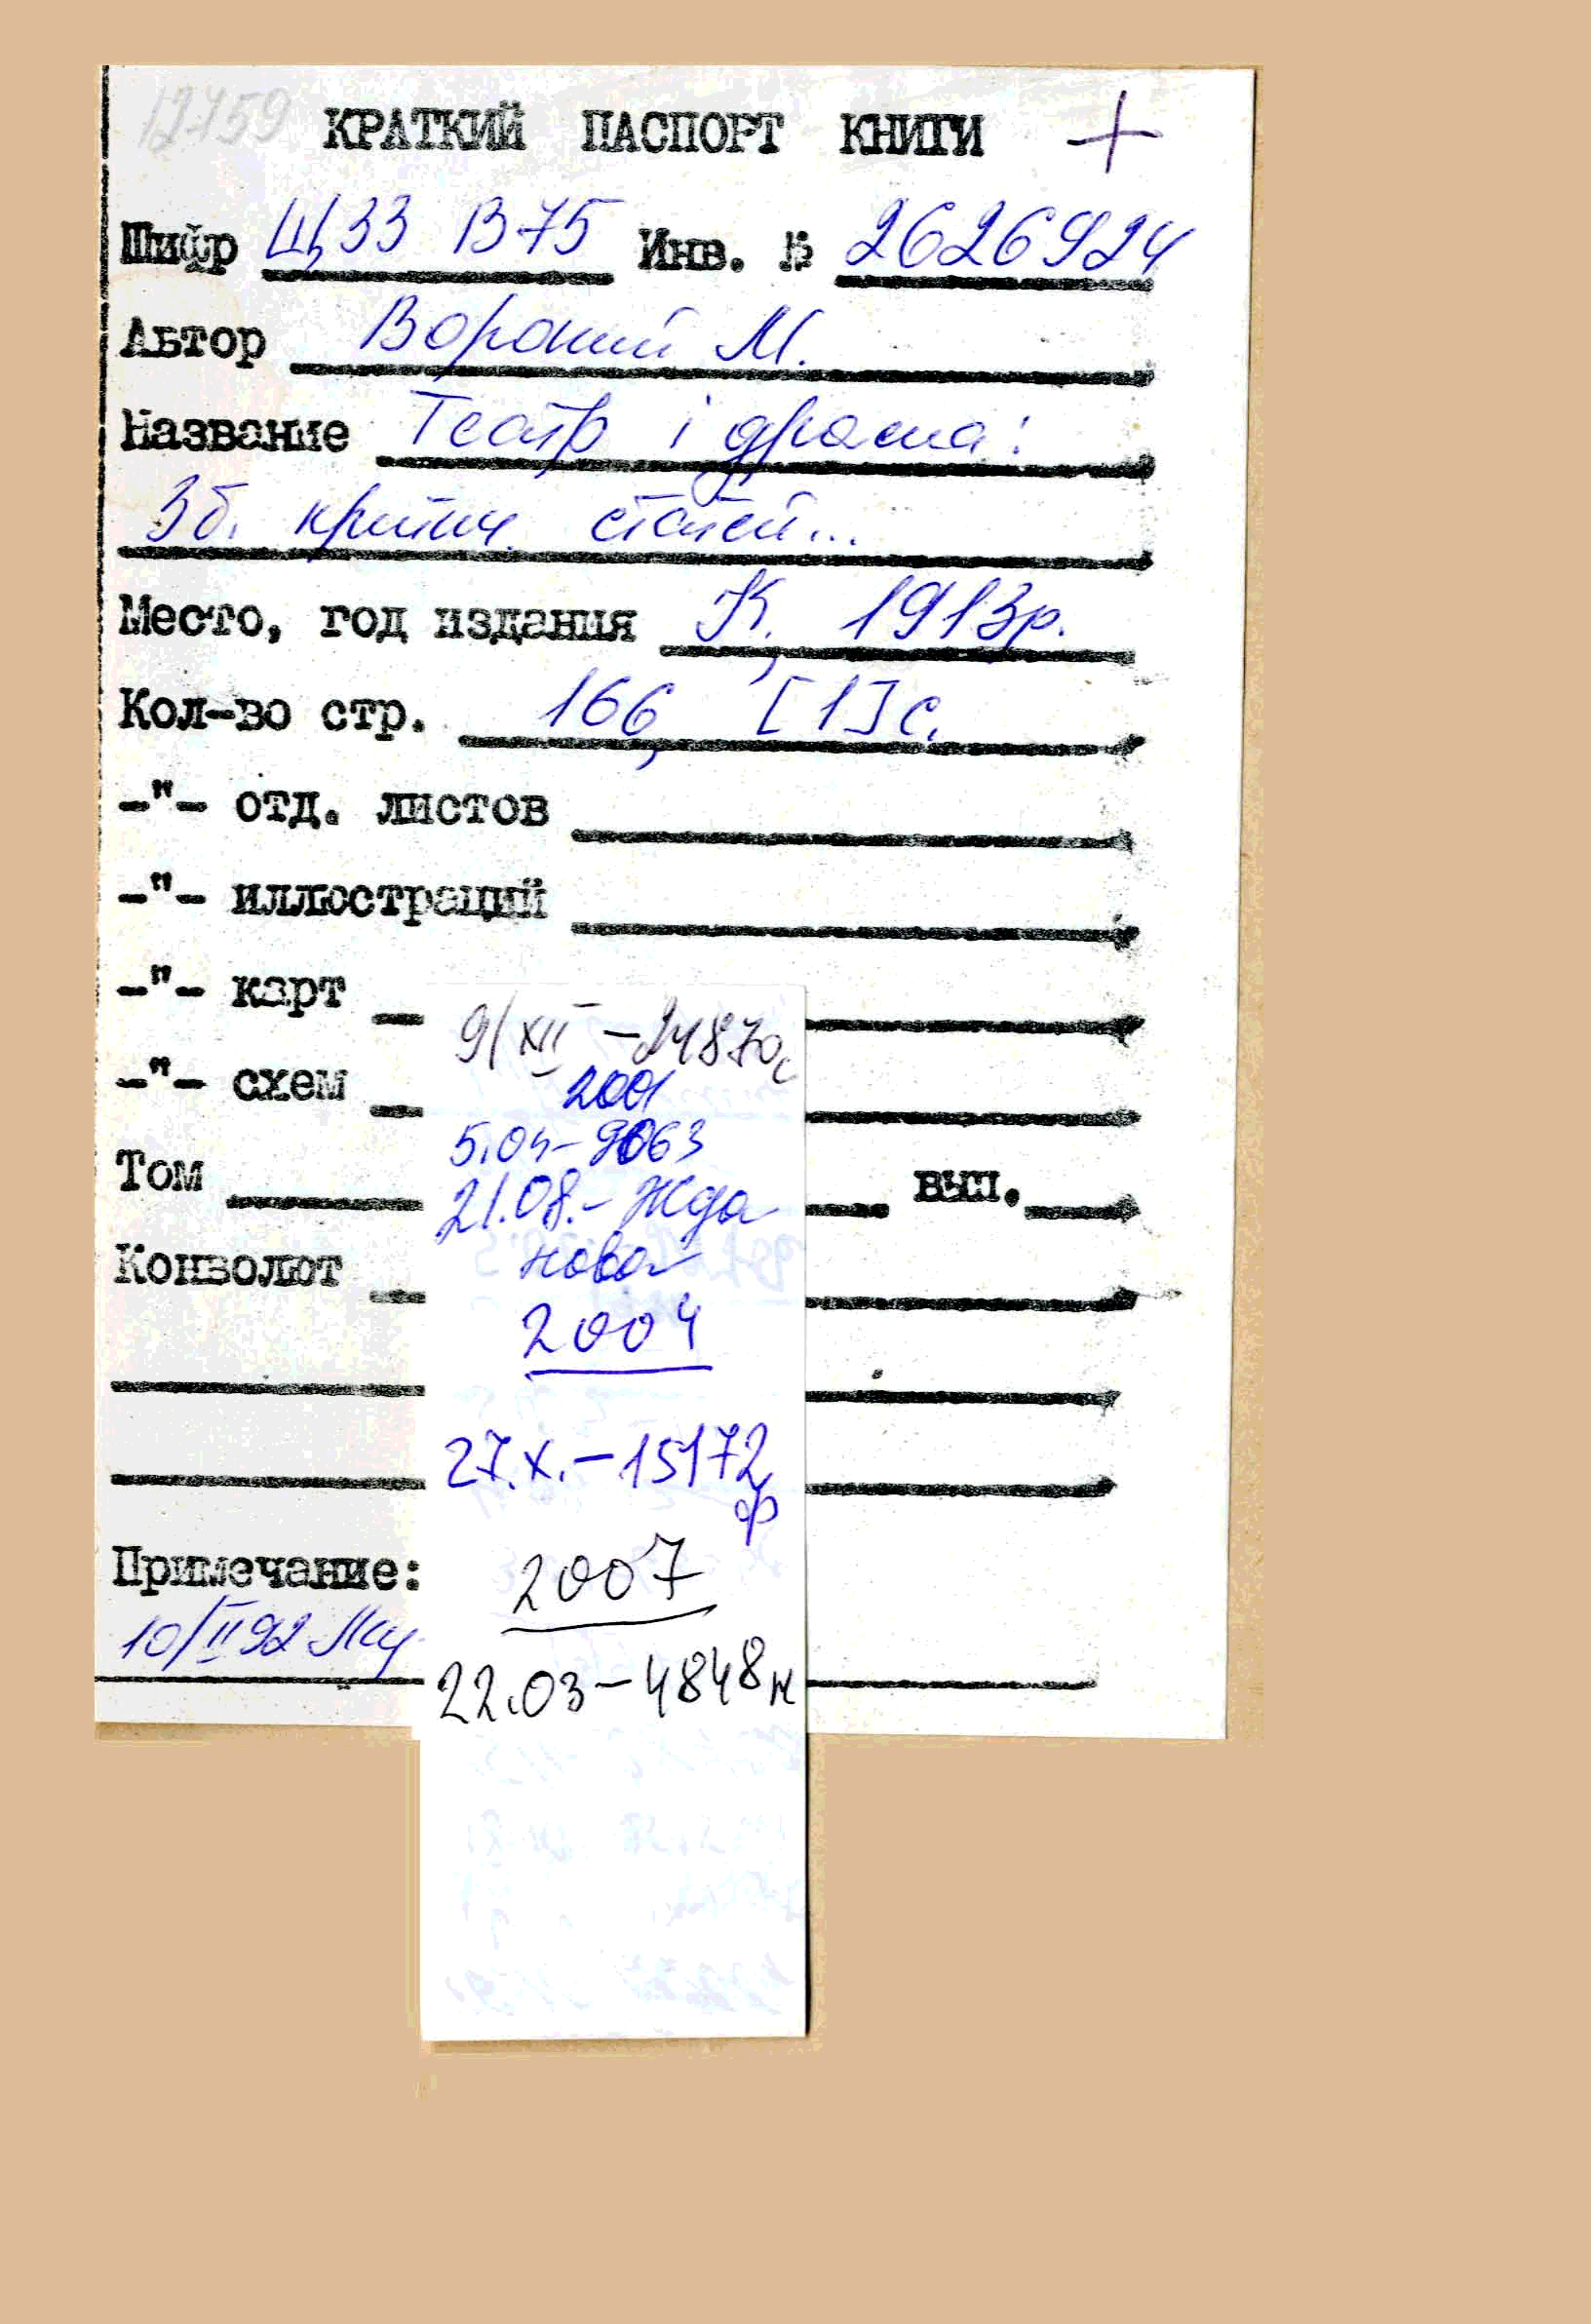 12759 КРАТКИЙ ПАСПОРТ КНИГИ +
Шифр Щ33 В75 Инв. № 2626924
Автор Вороний М.
Название Театр і драма:
Зб. критич. статей...
Место, год издания К., 1913р.
Кол-во стр. 166, [1] с.
-"- отд. листов
-"- иллюстраций
-"- карт
-"- схем
Том вып.
Конволют
Примечание:
10/II 92
9/XII - 24870с
2001
5.04 - 9063
21.08. - Жда
нова
2004
27.X. - 15172
ф
2007
22.03 - 4848н